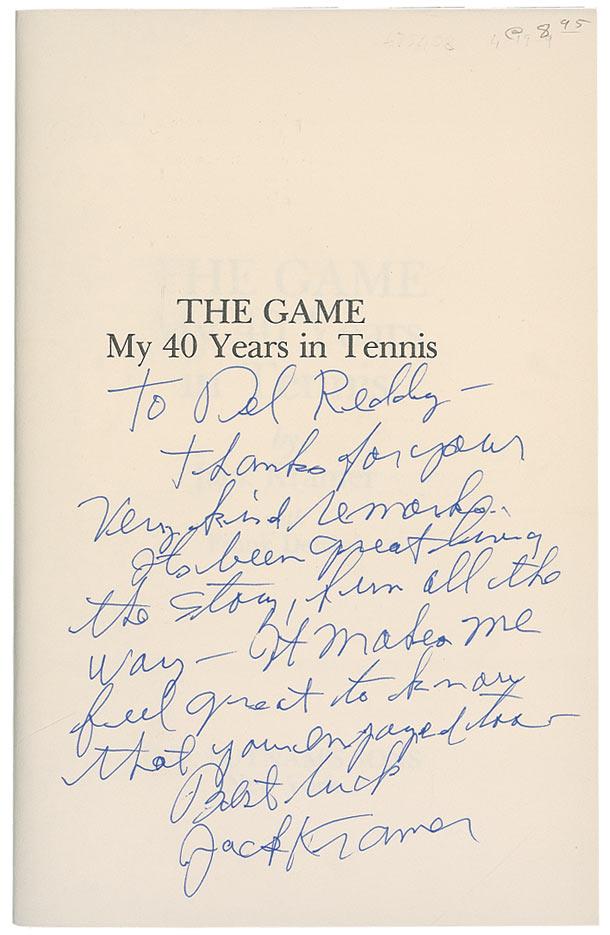 @ 8 95
THE GAME
My 40 Years in Tennis
To Del Reddy —
thanks for your
very kind remarks.
Its been great living
the story, fun all the
way — It makes me
feel great to know
that you enjoyed too —
Best luck
Jack Kramer